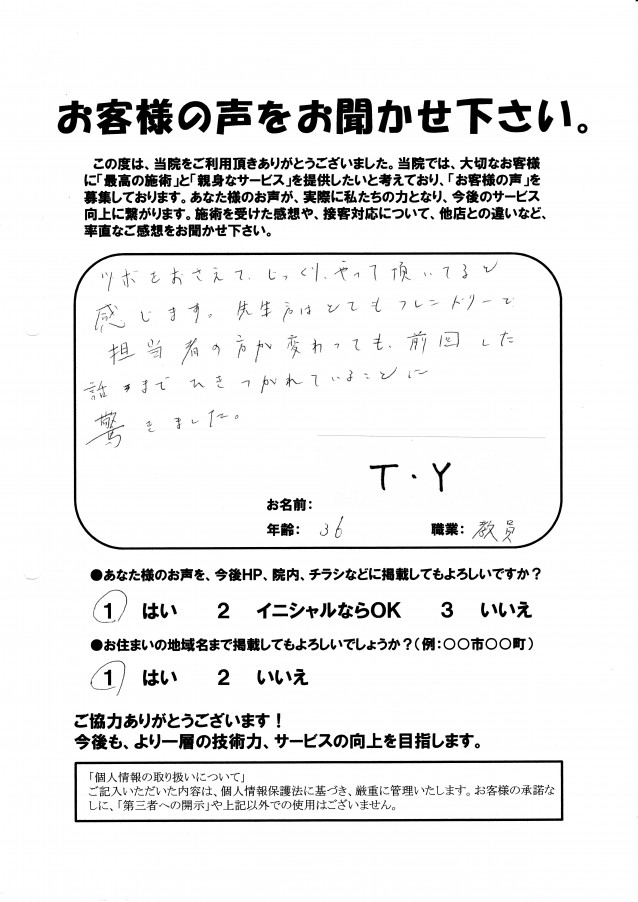 お客様の声をお聞かせ下さい。
この度は、当院をご利用頂きありがとうございました。当院では、大切なお客様
に「最高の施術」と「親身なサービス」を提供したいと考えており、「お客様の声」を
募集しております。あなた様のお声が、実際に私たちの力となり、今後のサービス
向上に繋がります。施術を受けた感想や、接客対応について、他店との違いなど、
率直なご感想をお聞かせ下さい。
ツボをおさえて、じっくり、やって頂いてると
感じます。先生方はとてもフレンドリーで
担当者の方が変わっても、前回した
話までひきつがれていることに
驚きました。
T・Y
お名前：
年齢： 36 職業： 教員
●あなた様のお声を、今後HP、院内、チラシなどに掲載してもよろしいですか？
1 はい 2 イニシャルならOK 3 いいえ
●お住まいの地域名まで掲載してもよろしいでしょうか？（例：〇〇市〇〇町）
1 はい 2 いいえ
ご協力ありがとうございます！
今後も、より一層の技術力、サービスの向上を目指します。
「個人情報の取り扱いについて」
ご記入いただいた内容は、個人情報保護法に基づき、厳重に管理いたします。お客様の承諾な
しに、「第三者への開示」や上記以外での使用はございません。